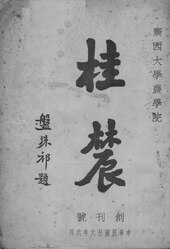 廣西大學農學院
桂農
盤珠祁題
創刊號
中華民國廿六年六月